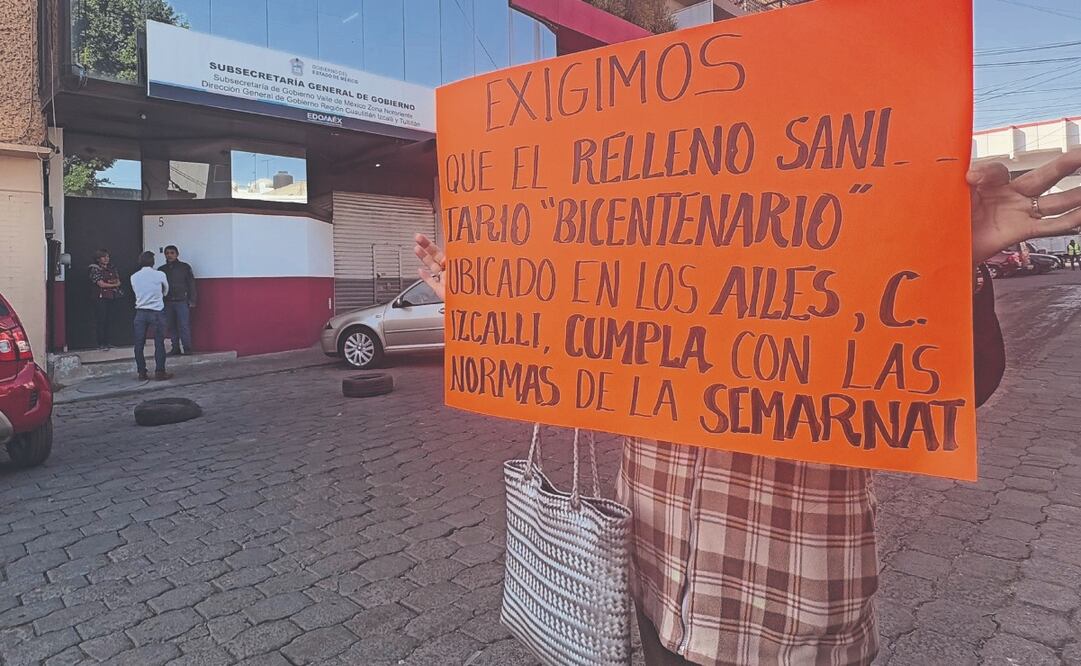 GOBIERNO DEL
ESTADO DE MÉXICO
SUBSECRETARÍA GENERAL DE GOBIERNO
Subsecretaría de Gobierno Valle de México Zona Nororiente
Dirección General de Gobierno Región Cuautitlán Izcalli y Tultitlán
EDOMÉX
5
EXIGIMOS
QUE EL RELLENO SANI_ _
TARIO "BICENTENARIO"
UBICADO EN LOS AILES, C.
IZCALLI, CUMPLA CON LAS
NORMAS DE LA SEMARNAT